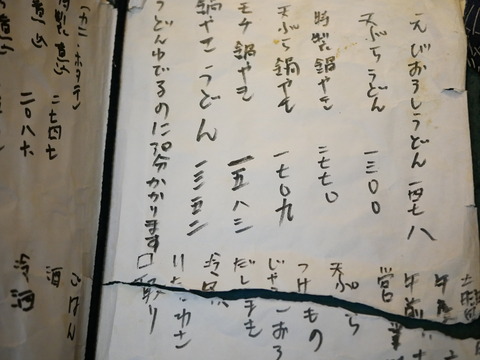 えびおろしうどん 一四七八
天ぷらうどん 一三〇〇
特製鍋やき 二七七〇
天ぷら鍋やき 一七〇九
モチ鍋やき 一五八三
鍋やきうどん 一三五二
うどんゆでるのに20分かかります
午前
営業
天ぷら
つけもの
じゃこおろ
だしまき
いたわさ
口取り
(カニ・ホタテ)
二七四七
二〇八六
ごはん
酒